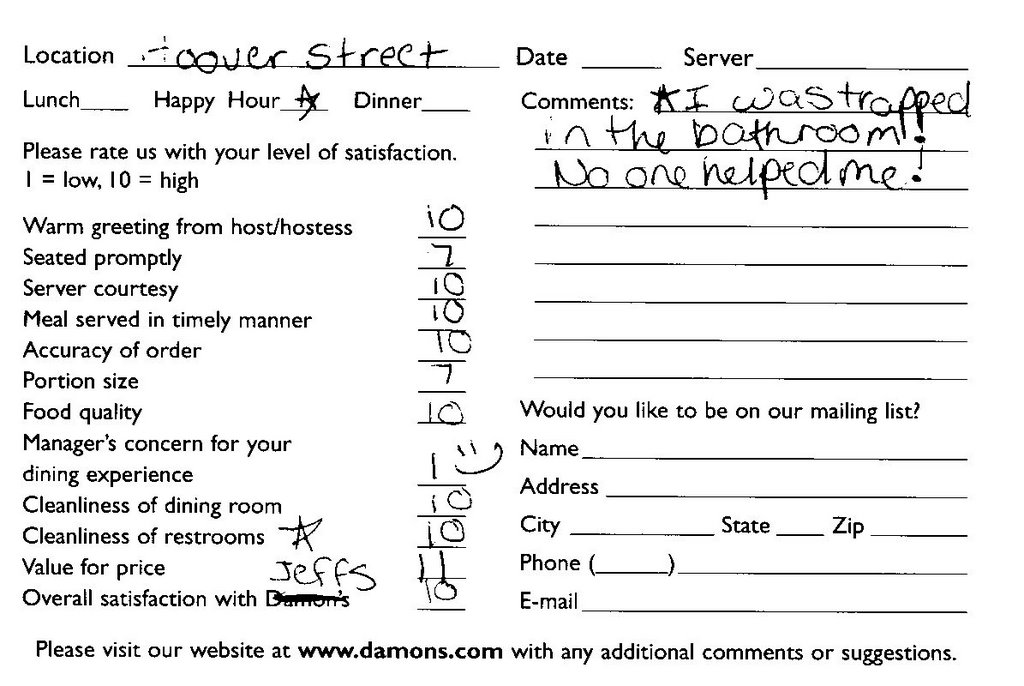 Location Hoover Street
Date ____ Server ____
Lunch____ Happy Hour ☆ Dinner____
Comments: ★I was trapped
in the bathroom!!
No one helped me!
Please rate us with your level of satisfaction.
1 = low, 10 = high
Warm greeting from host/hostess 10
Seated promptly 7
Server courtesy 10
Meal served in timely manner 10
Accuracy of order 10
Portion size 7
Food quality 10
Manager's concern for your
dining experience 1 :)
Cleanliness of dining room 10
Cleanliness of restrooms ☆ 10
Value for price 11
Jeffs
Overall satisfaction with Damon's 10
Would you like to be on our mailing list?
Name
Address
City ____ State ____ Zip ____
Phone (____)
E-mail
Please visit our website at www.damons.com with any additional comments or suggestions.